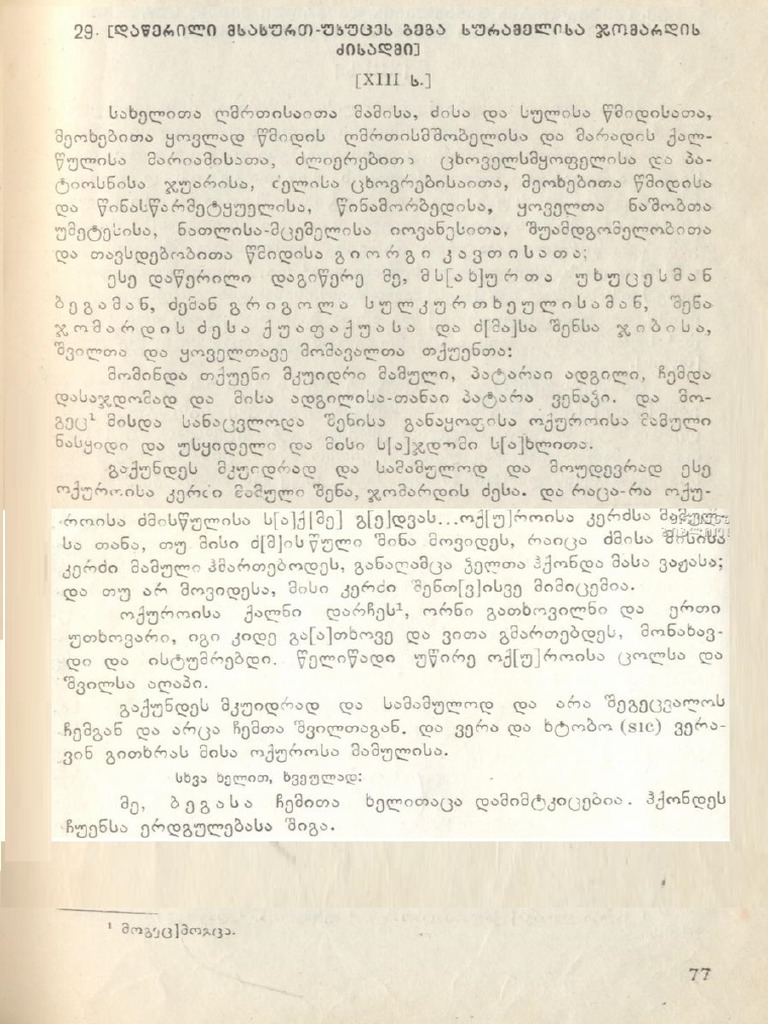 29. [დაწერილი მსახურთ-უხუცეს ბეგა სურამელისა ჯომარდის
ძისადმი]
[XIII ს.]
სახელითა ღმრთისაითა მამისა, ძისა და სულისა წმიდისათა,
მეოხებითა ყოვლად წმიდის ღმრთისმშობელისა და მარადის ქალ-
წულისა მარიამისათა, ძლიერებითა ცხოველსმყოფელისა და პა-
ტიოსნისა ჯუარისა, ძელისა ცხოვრებისაითა, მეოხებითა წმიდისა
და წინასწარმეტყუელისა, წინამორბედისა, ყოველთა ნაშობთა
უმეტესისა, ნათლისა-მცემელისა იოვანესითა, შუამდგომელობითა
და თავსდებობითა წმიდისა გიორგი კავთისათა;
ესე დაწერილი დაგიწერე მე, მს[ახ]ურთა უხუცესმან
ბეგამან, ძემან გრიგოლა სულკურთხეულისამან, შენა
ჯომარდის ძესა ქუაფაქუასა და ძ[მა]სა შენსა ჯიბისა,
შვილთა და ყოველთავე მომავალთა თქუენთა:
მომინდა თქუენი მკუიდრი მამული, პატარაი ადგილი, ჩემდა
დასაჯდომად და მისა ადგილისა-თანაი პატარა ვენაჴი. და მო-
გეც¹ მისდა სანაცვლოდა შენისა განაყოფისა ოქუროისა მამული
ნასყიდი და უსყიდელი და მისი ს[ა]ჯდომი ს[ა]ხლითა.
გაქუნდეს მკუიდრად და სამამულოდ და მოუდევრად ესე
ოქუროისა კერძი მამული შენა, ჯომარდის ძესა. და რაცა-რა ოქუ-
როისა ძმისწულისა ს[ა]ქ[მე] გ[ე]დვას...ოქ[უ]როისა კერძსა მამულ-
სა თანა, თუ მისი ძ[მ]ისწული შინა მოვიდეს, რაიცა ძმისა მისისა
კერძი მამული ჰმართებოდეს, განაღამცა ჴელთა ჰქონდა მასა ვაჟასა;
და თუ არ მოვიდესა, მისი კერძი შენთ[ვ]ისვე მიმიცემია.
ოქუროისა ქალნი დარჩეს¹, ორნი გათხოვილნი და ერთი
უთხოვარი, იგი კიდე გა[ა]თხოვე და ვითა გმართებდეს, მონახავ-
დი და ისტუმრებდი. წელიწადი უწირე ოქ[უ]როისა ცოლსა და
შვილსა აღაპი.
გაქუნდეს მკუიდრად და სამამულოდ და არა შეგეცვალოს
ჩემგან და არცა ჩემთა შვილთაგან. და ვერა და ხტობო (sic) ვერა-
ვინ გითხრას მისა ოქუროსა მამულისა.
სხვა ხელით, ხვეულად:
მე, ბეგასა ჩემითა ხელითაცა დამიმტკიცებია. ჰქონდეს
ჩუენსა ერდგულებასა შიგა.
¹ მოგეც]მოგცა.
77